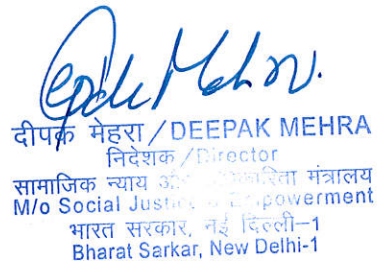 दीपक मेहरा / DEEPAK MEHRA
निदेशक / Director
सामाजिक न्याय और मंत्रालय
M/o Social Justice & Empowerment
भारत सरकार, नई दिल्ली-1
Bharat Sarkar, New Delhi-1